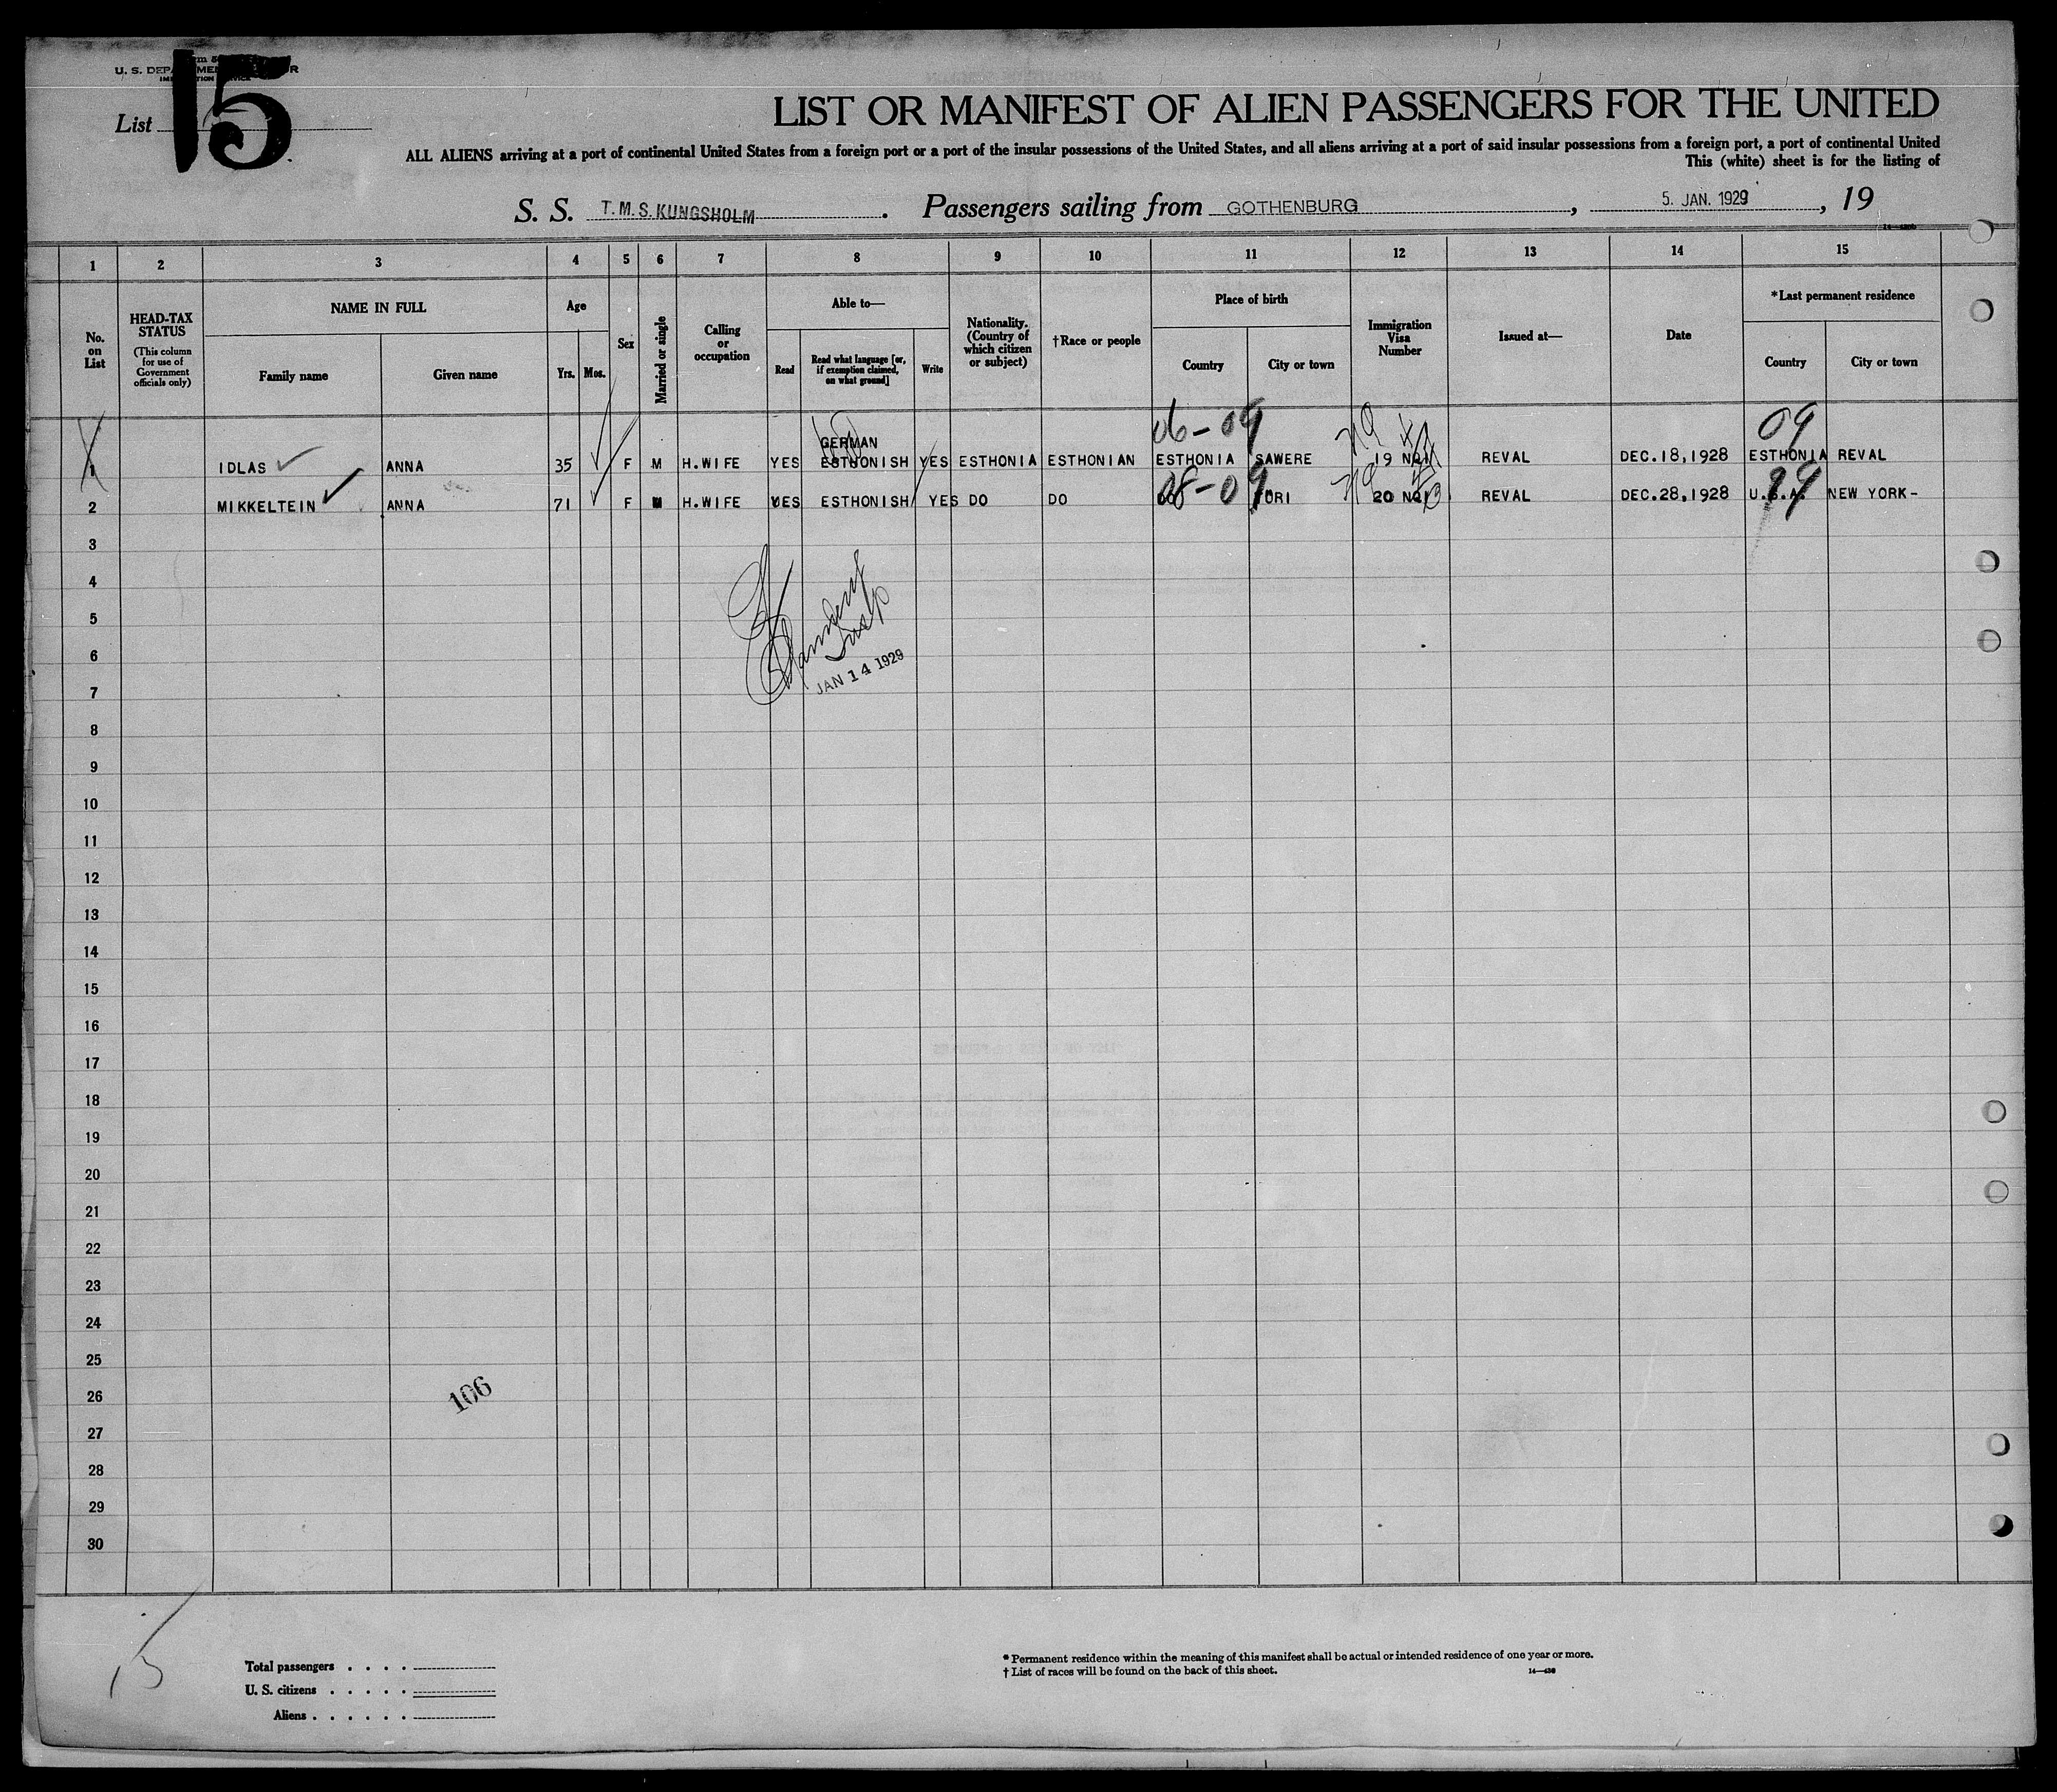 U. S. DEP
List 15
LIST OR MANIFEST OF ALIEN PASSENGERS FOR THE UNITED
ALL ALIENS arriving at a port of continental United States from a foreign port or a port of the insular possessions of the United States, and all aliens arriving at a port of said insular possessions from a foreign port, a port of continental United
This (white) sheet is for the listing of
S. S. T.M.S.KUNGSHOLM. Passengers sailing from GOTHENBURG, 5. JAN. 1929, 19
1 2 3 4 5 6 7 8 9 10 11 12 13 14 15
No. on List
HEAD-TAX STATUS (This column for use of Government officials only)
NAME IN FULL
Family name Given name
Age
Yrs. Mos.
Sex
Married or single
Calling or occupation
Able to—
Read
Read what language [or, if exemption claimed, on what ground]
Write
Nationality. (Country of which citizen or subject)
†Race or people
Place of birth
Country City or town
Immigration Visa Number
Issued at—
Date
*Last permanent residence
Country City or town
06-09 09
GERMAN
1 IDLAS ANNA 35 F M H.WIFE YES ESTHONISH YES ESTHONIA ESTHONIAN ESTHONIA SAWERE 19 REVAL DEC.18,1928 ESTHONIA REVAL
08-09 99
2 MIKKELTEIN ANNA 71 F M H.WIFE YES ESTHONISH YES DO DO 20 REVAL DEC.28,1928 U.S.A. NEW YORK-
3
4
5
6
JAN 14 1929
7
8
9
10
11
12
13
14
15
16
17
18
19
20
21
22
23
24
25
26
106
27
28
29
30
15
Total passengers . . . .
U. S. citizens . . . . .
Aliens . . . . . .
* Permanent residence within the meaning of this manifest shall be actual or intended residence of one year or more.
† List of races will be found on the back of this sheet.